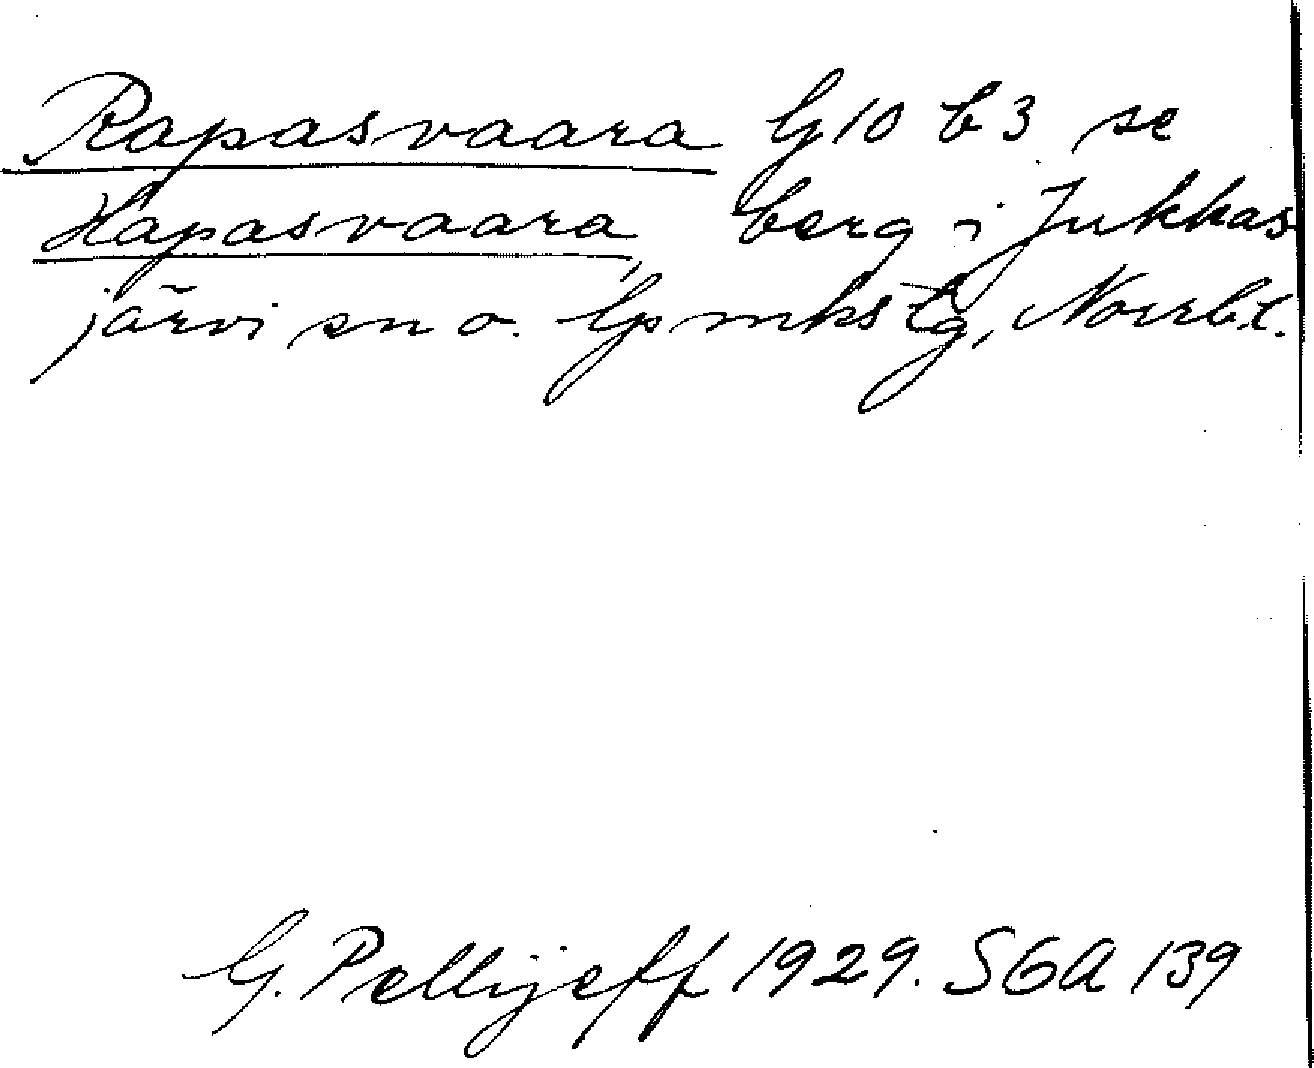 Rapasvaara G10 b3 se
Hapasvaara, berg i Jukkas
järvi sn o. Gs mks tg, Norrb.l.
G. Pellijeff 1929. SGA 139